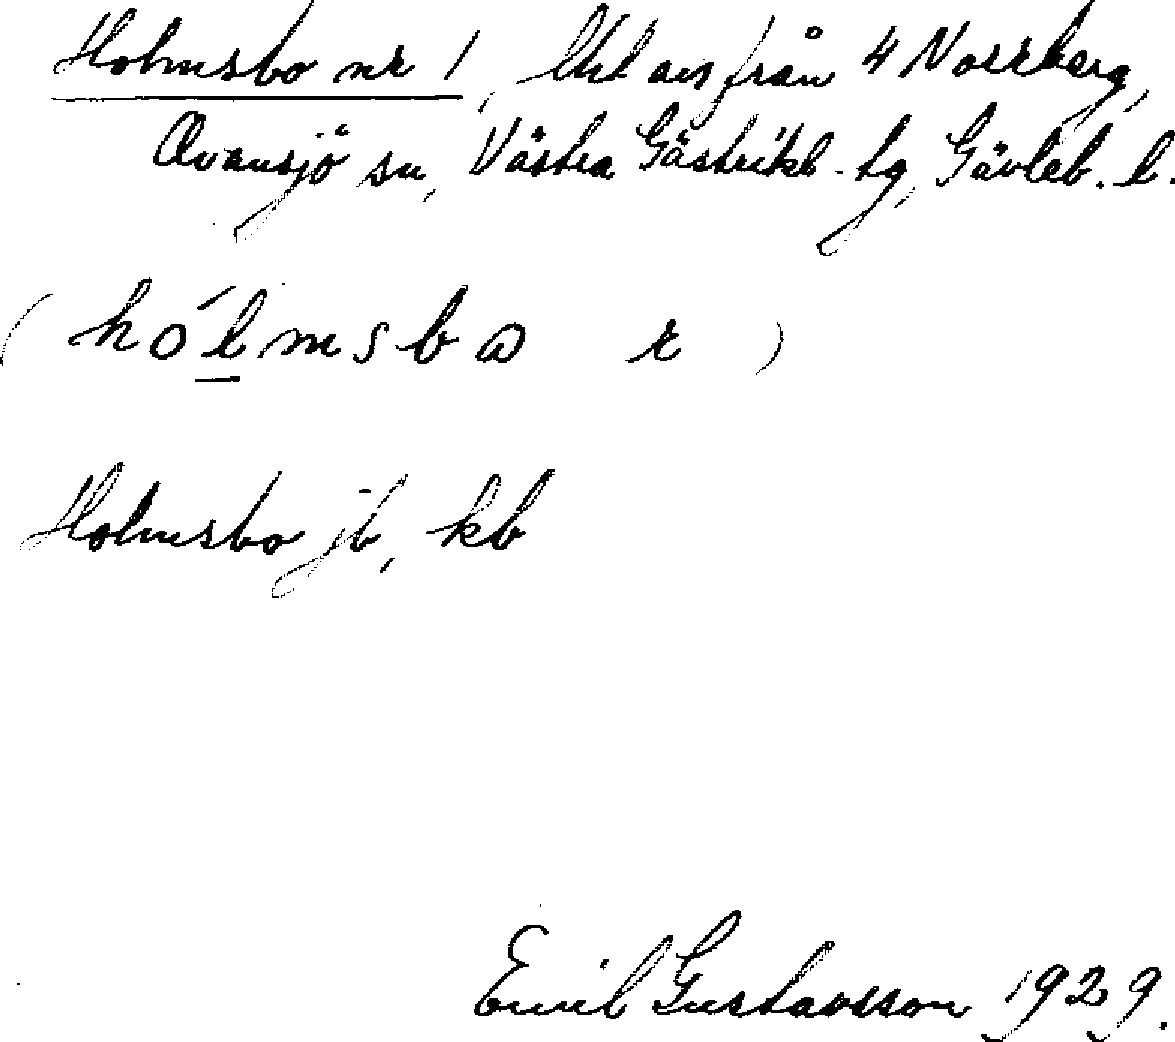 Holmsbo nr 1, Utl av från 4 Norrberg,
Ovansjö sn, Västra Gästrikl. tg, Gävleb. l.
(hólmsbo r)
Holmsbo jb, kb
Emil Gustavsson 1929.